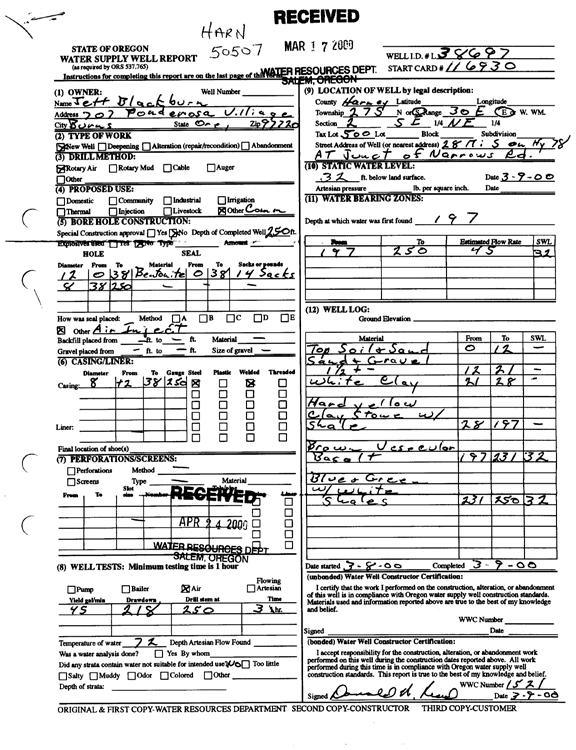 RECEIVED
HARN
50507
MAR 17 2000
STATE OF OREGON
WATER SUPPLY WELL REPORT
(as required by ORS 537.765)
Instructions for completing this report are on the last page of this
WATER RESOURCES DEPT.
SALEM, OREGON
WELL I.D. # L 38697
START CARD # 116930
(1) OWNER: Well Number
Name Jeff Blackburn
Address 707 Ponderosa Villiage
City Burns State Ore, Zip 97720
(2) TYPE OF WORK
New Well Deepening Alteration (repair/recondition) Abandonment
(3) DRILL METHOD:
Rotary Air Rotary Mud Cable Auger
Other
(4) PROPOSED USE:
Domestic Community Industrial Irrigation
Thermal Injection Livestock Other Comm
(5) BORE HOLE CONSTRUCTION:
Special Construction approval Yes No Depth of Completed Well 250 ft.
Explosives used Yes No Type Amount
HOLE SEAL
Diameter From To Material From To Sacks or pounds
12 0 38 Bentonite 0 38 14 Sacks
8 38 250 —
How was seal placed: Method A B C D E
Other Air Inject
Backfill placed from — ft. to — ft. Material —
Gravel placed from — ft. to — ft. Size of gravel —
(6) CASING/LINER:
Diameter From To Gauge Steel Plastic Welded Threaded
Casing: 8 +2 38 250
Liner:
Final location of shoe(s)
(7) PERFORATIONS/SCREENS:
Perforations Method
Screens Type Material
From To Slot size Number Liner
RECEIVED
APR 24 2000
WATER RESOURCES DEPT
SALEM, OREGON
(8) WELL TESTS: Minimum testing time is 1 hour
Pump Bailer Air Flowing Artesian
Yield gal/min Drawdown Drill stem at Time
45 218 250 3 hr.
Temperature of water 72 Depth Artesian Flow Found
Was a water analysis done? Yes By whom
Did any strata contain water not suitable for intended use? NO Too little
Salty Muddy Odor Colored Other
Depth of strata:
(9) LOCATION OF WELL by legal description:
County Harney Latitude Longitude
Township 27S N or S Range 30E E or W. WM.
Section 2 SE 1/4 NE 1/4
Tax Lot 500 Lot Block Subdivision
Street Address of Well (or nearest address) 28 Mi S on Hy 78
AT Junct of Narrows Rd.
(10) STATIC WATER LEVEL:
32 ft. below land surface. Date 3-9-00
Artesian pressure lb. per square inch. Date
(11) WATER BEARING ZONES:
Depth at which water was first found 197
From To Estimated Flow Rate SWL
197 250 45 32
(12) WELL LOG:
Ground Elevation
Material From To SWL
Top Soil & Sand 0 12 —
Sand & Gravel
1/2 + - 12 21 —
White Clay 21 28 —
Hard yellow
Clay Stone w/
Shale 28 197 —
Brown Vesecular
Basalt 197 231 32
Blue & Green
w/ white
Shales 231 250 32
Date started 3-8-00 Completed 3-9-00
(unbonded) Water Well Constructor Certification:
I certify that the work I performed on the construction, alteration, or abandonment
of this well is in compliance with Oregon water supply well construction standards.
Materials used and information reported above are true to the best of my knowledge
and belief.
WWC Number
Signed Date
(bonded) Water Well Constructor Certification:
I accept responsibility for the construction, alteration, or abandonment work
performed on this well during the construction dates reported above. All work
performed during this time is in compliance with Oregon water supply well
construction standards. This report is true to the best of my knowledge and belief.
WWC Number 1521
Signed Date 3-9-00
ORIGINAL & FIRST COPY-WATER RESOURCES DEPARTMENT SECOND COPY-CONSTRUCTOR THIRD COPY-CUSTOMER